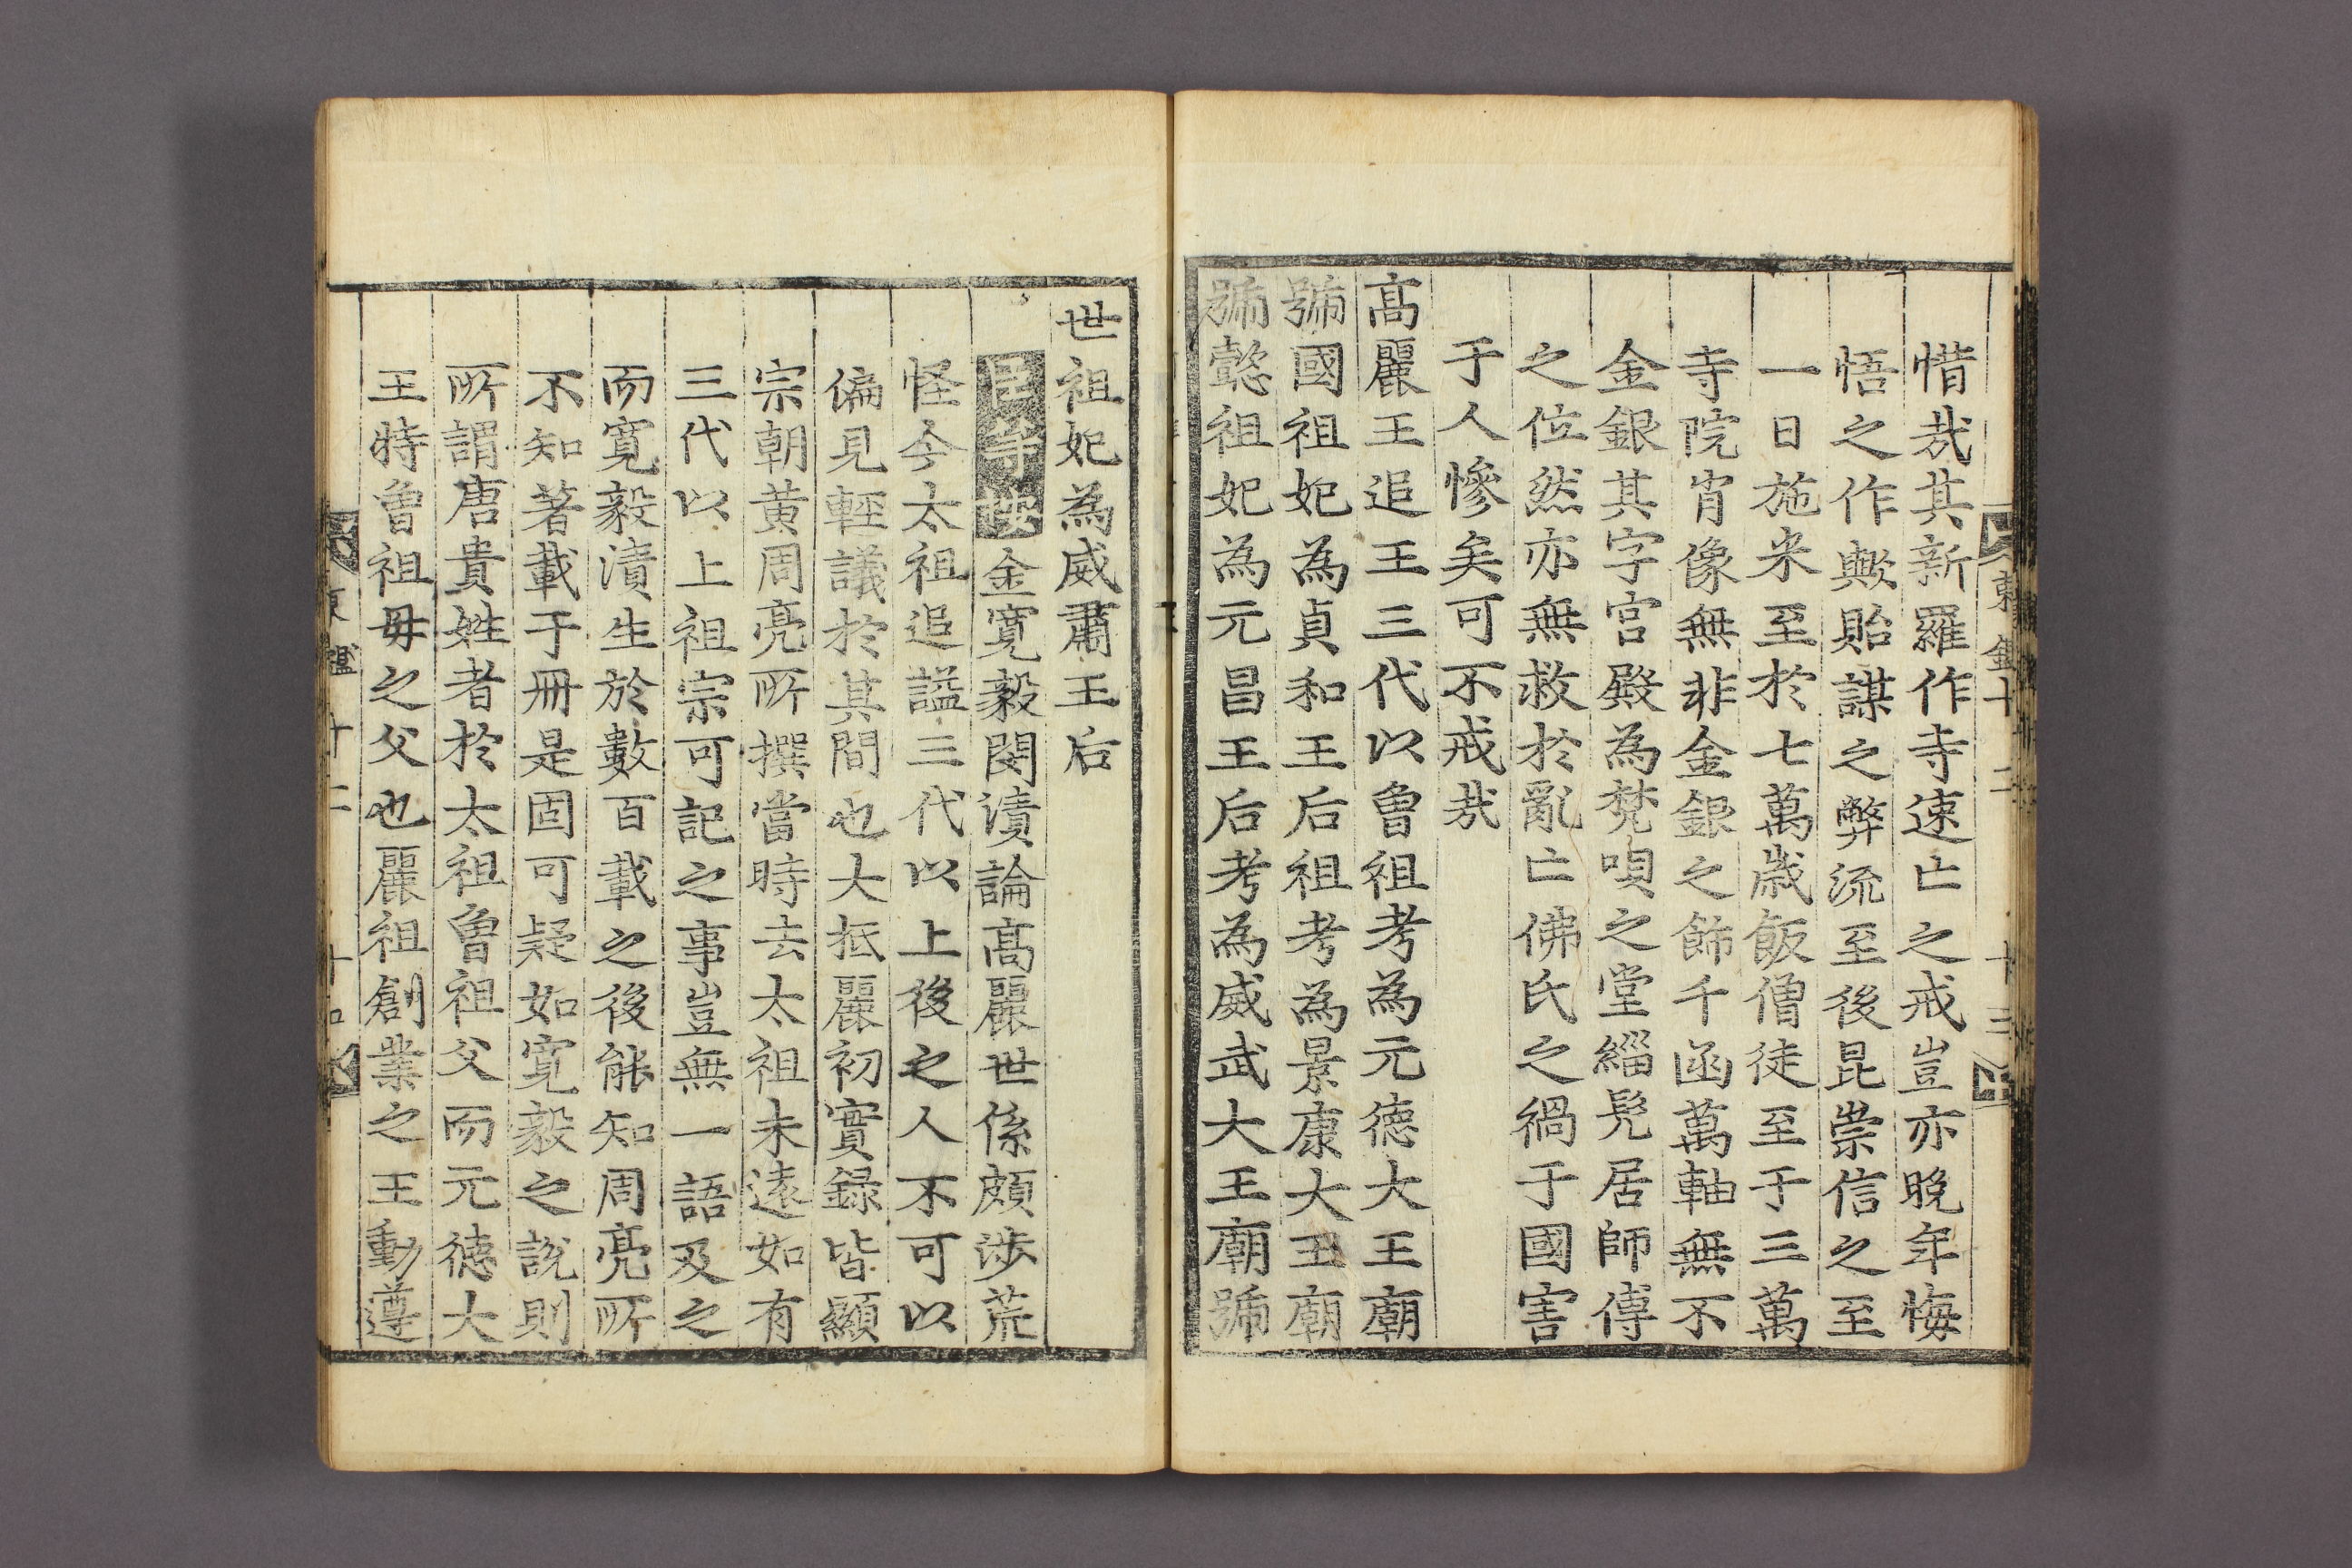 惜哉其新羅作寺速亡之戒豈亦晩年悔
悟之作歟貽謀之弊流至後昆崇信之至
一日施米至於七萬歲飯僧徒至于三萬
寺院肖像無非金銀之飾千函萬軸無不
金銀其字宮殿為梵唄之堂緇髡居師傅
之位然亦無救於亂亡佛氏之禍于國害
于人慘矣可不戒哉
高麗王追王三代以曾祖考為元德大王廟
號國祖妃為貞和王后祖考為景康大王廟
號懿祖妃為元昌王后考為威武大王廟號
世祖妃為威肅王后
臣等按金寬毅閔漬論高麗世係頗涉荒
怪今太祖追謚三代以上後之人不可以
偏見輕議於其間也大抵麗初實錄皆顯
宗朝黃周亮所撰當時去太祖未遠如有
三代以上祖宗可記之事豈無一語及之
而寬毅漬生於數百載之後能知周亮所
不知著載于冊是固可疑如寬毅之說則
所謂唐貴姓者於太祖曾祖父而元德大
王時曾祖母之父也麗祖創業之王動遵